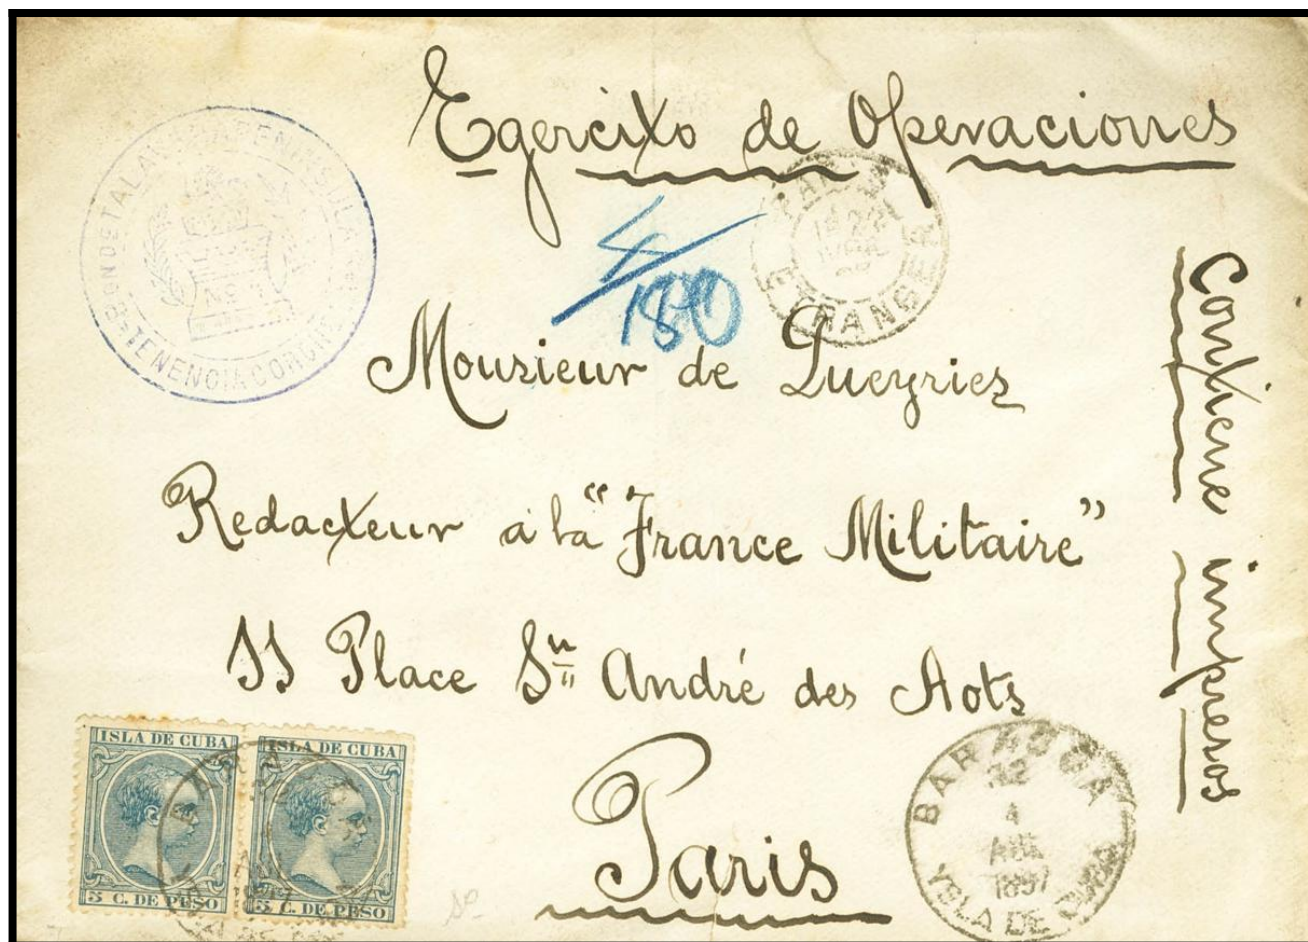 Egercito de Operaciones
4/180
ETRANGER
PENINSULAR
TENENCIA CORONEL
Mousieur de Lueyries
Redacteur a la "France Militaire"
Place Sn André des Aots
Paris
Contiene impresos
ISLA DE CUBA
5 C. DE PESO
ISLA DE CUBA
5 C. DE PESO
BARACOA
4
1897
YSLA DE CUBA